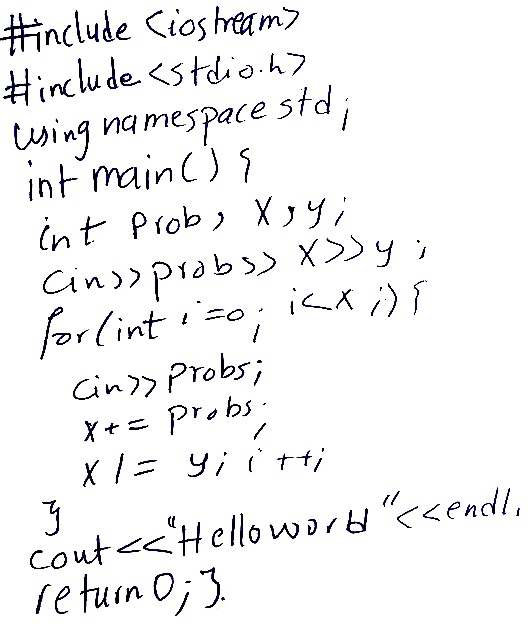 #include <iostream>
#include<stdio.h>
using namespace std;
int main() {
int Prob, X, y;
cin>>probs>> X>>y;
for(int i=0; i<x;) {
cin>> Probs;
x+= Probs;
x /= y; i++;
}
cout<<"Hello world"<<endl.
return 0; }.